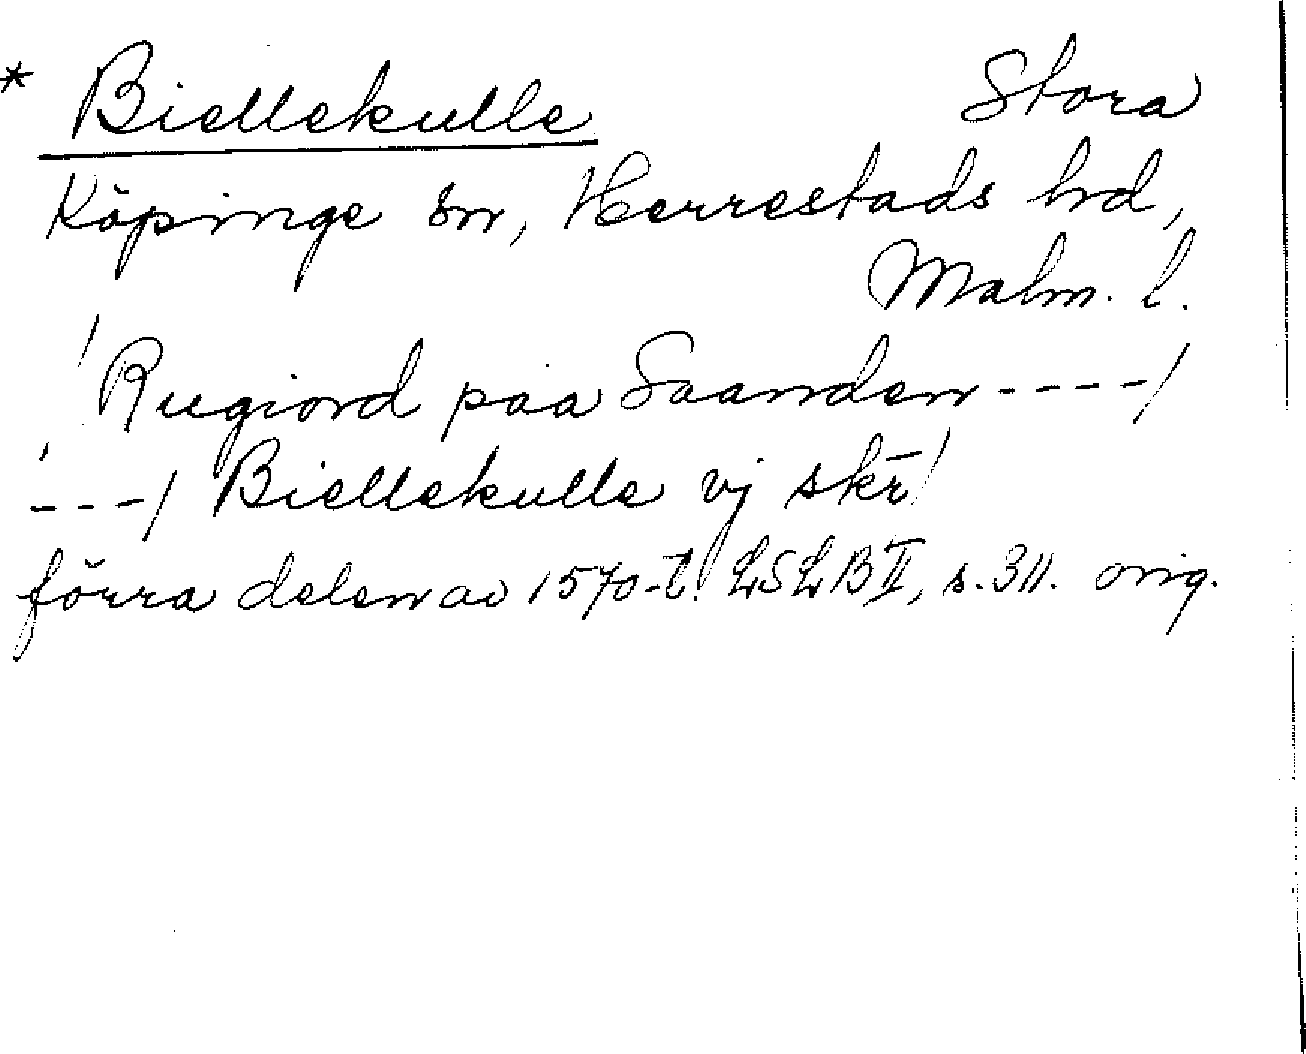 * Biellekulle Stora
Köpinge sn, Herrestads hd,
Malm. l.
/ Rugiord paa Saanden ----/
/---/ Biellekulle vj skr̄/
förra delen av 1570-t./ LSLB II, s. 311. orig.